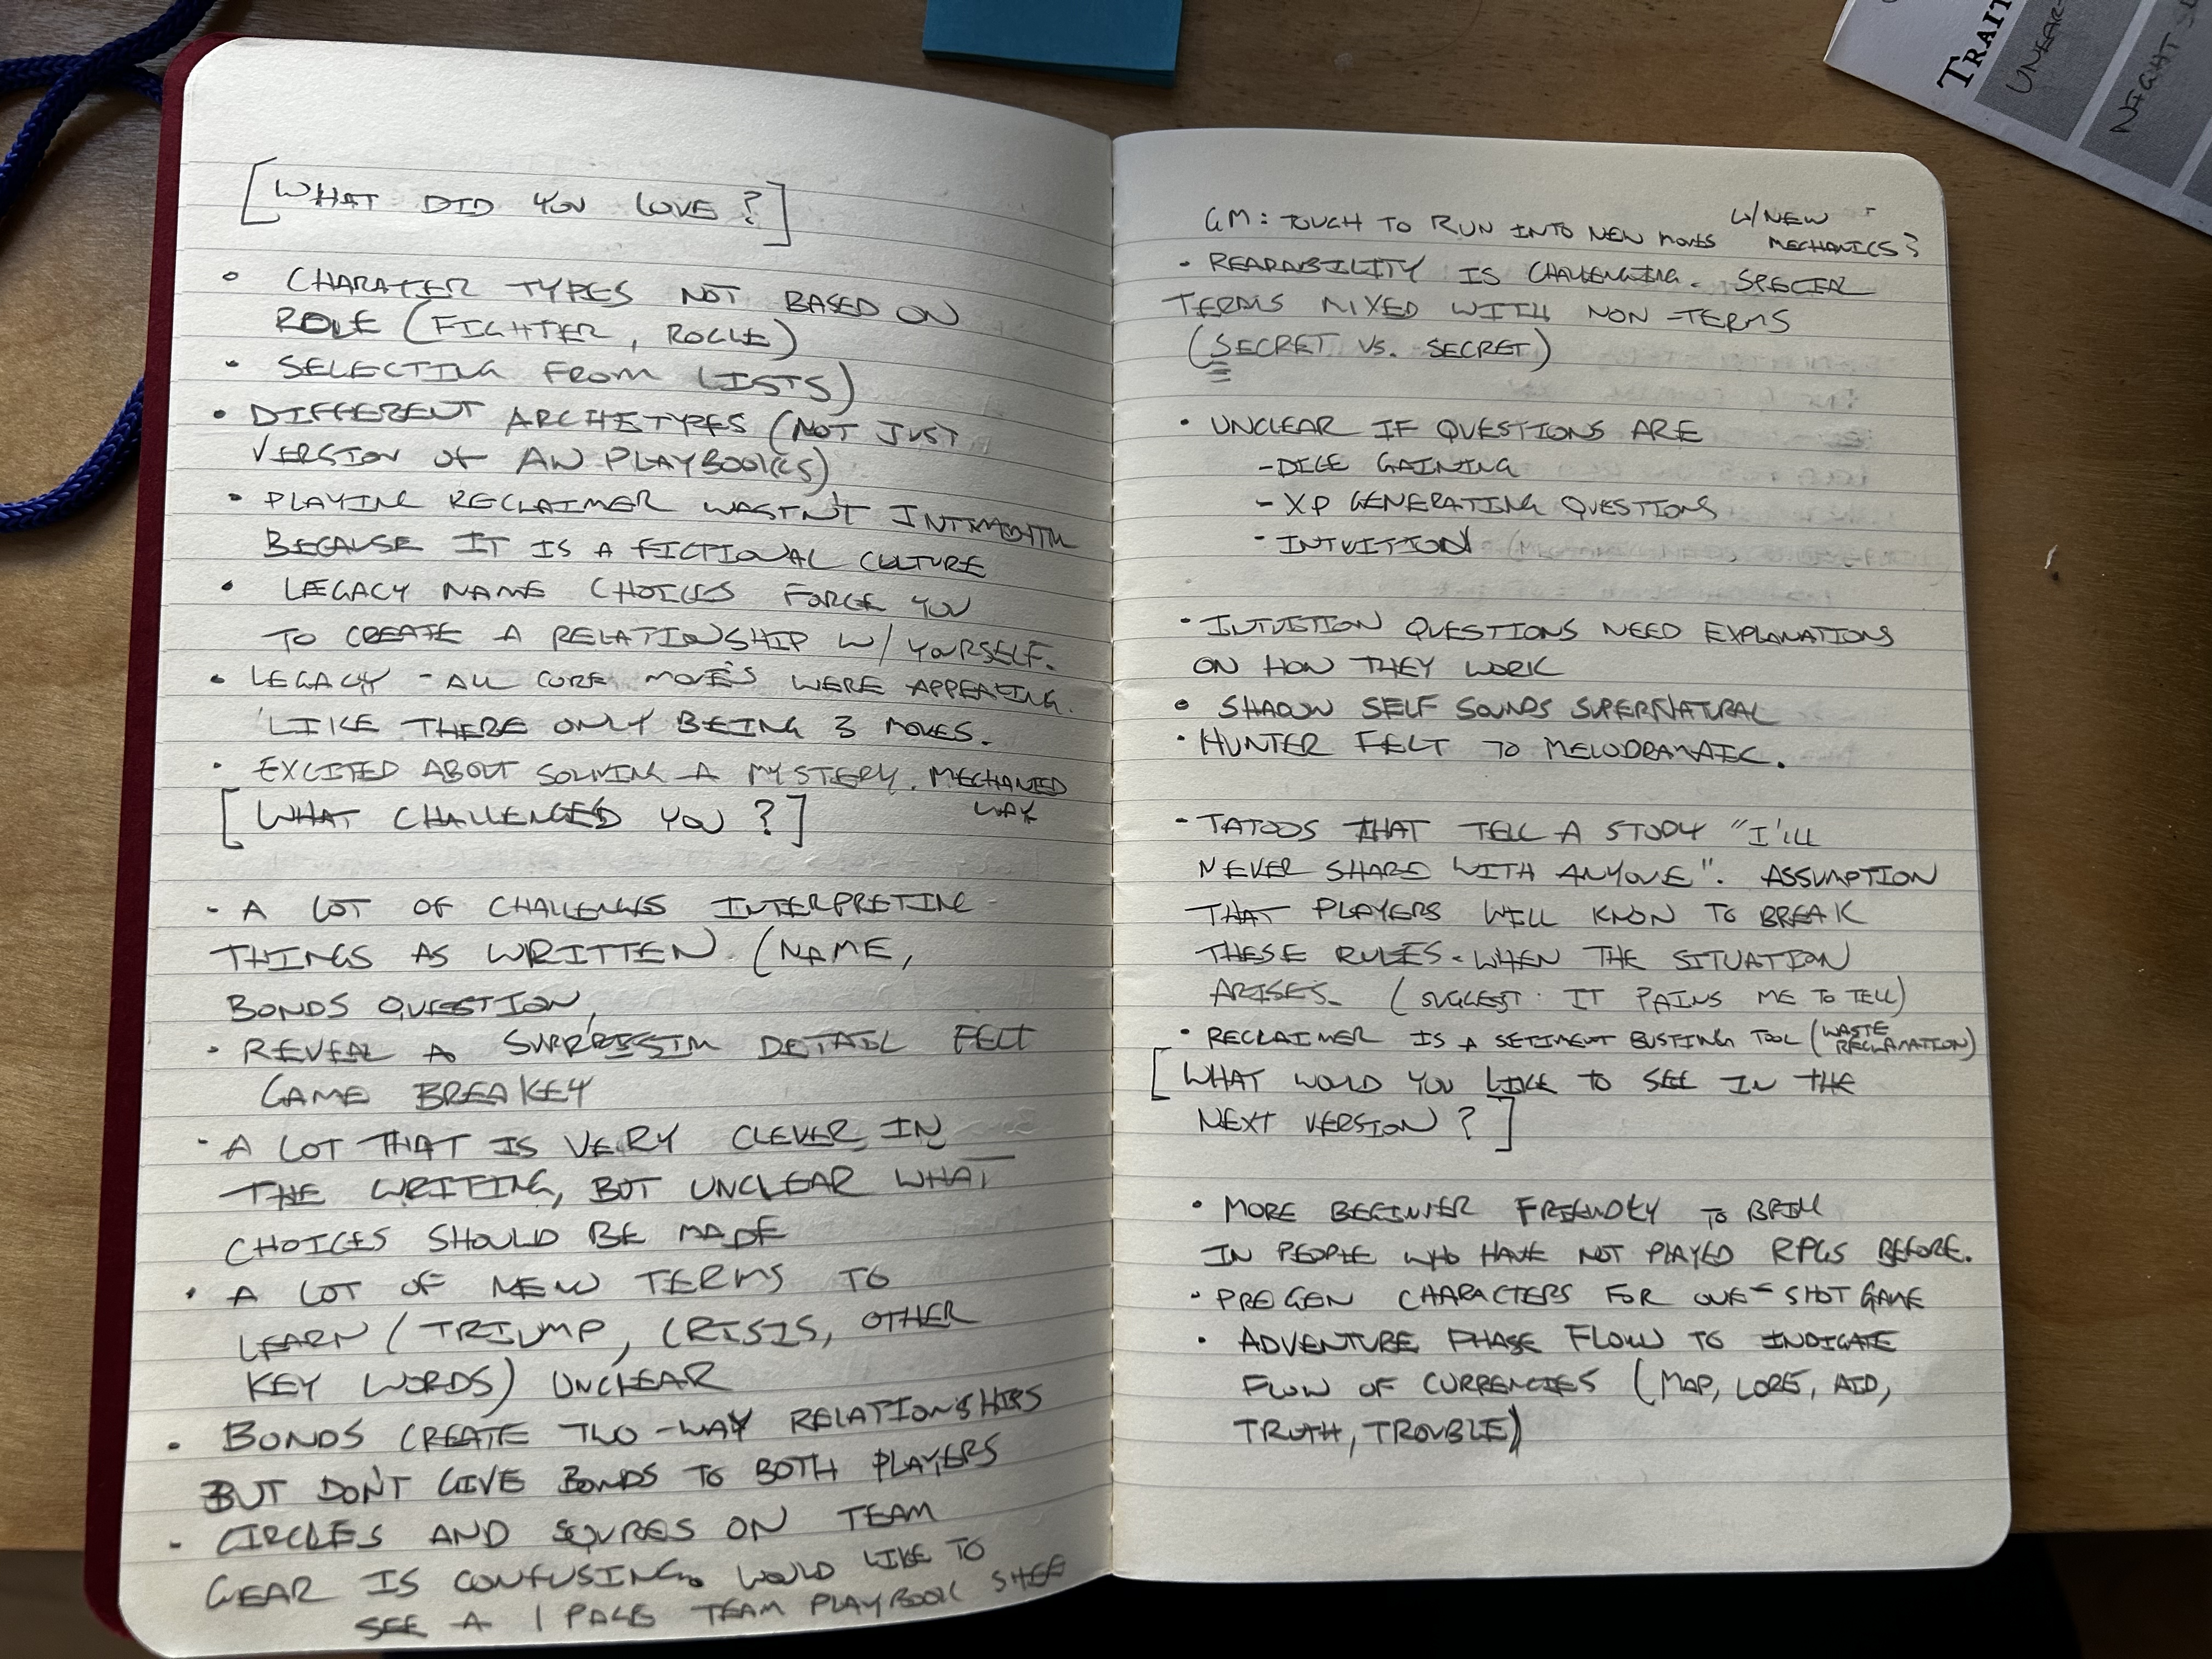 [WHAT DID YOU LOVE?]
• CHARATER TYPES NOT BASED ON
ROLE (FIGHTER, ROGUE)
• SELECTING FROM LISTS)
• DIFFERENT ARCHETYPES (NOT JUST
VERSION OF AW PLAYBOOKS)
• PLAYING RECLAIMER WASTN'T
BECAUSE IT IS A FICTIONAL CULTURE
• LEGACY NAME CHOICES FORCE YOU
TO CREATE A RELATIONSHIP W/ YOURSELF.
• LEGACY - ALL CORE MOVES WERE APPEALING.
LIKE THERE ONLY BEING 3 MOVES.
• EXCITED ABOUT SOLVING A MYSTERY. MECHANIED
WAY
[WHAT CHALLENGED YOU?]
- A LOT OF CHALLENGES INTERPRETING
THINGS AS WRITTEN. (NAME,
BONDS QUESTION,
• REVEAL A DETAIL FELT
GAME BREAKEY
• A LOT THAT IS VERY CLEVER IN
THE WRITING, BUT UNCLEAR WHAT
CHOICES SHOULD BE MADE
• A LOT OF NEW TERMS TO
LEARN (TRIUMP, CRISIS, OTHER
KEY WORDS) UNCLEAR
• BONDS CREATE TWO-WAY RELATIONSHIPS
BUT DON'T GIVE BONDS TO BOTH PLAYERS
- CIRCLES AND SQURES ON TEAM
GEAR IS CONFUSING. WOULD LIKE TO
SEE A 1 PAGE TEAM PLAYBOOK SHEE
GM: TOUGH TO RUN INTO NEW MOVES W/ NEW
MECHANICS?
• READABILITY IS CHALLENGING. SPECIAL
TERMS MIXED WITH NON-TERMS
(SECRET VS. SECRET)
• UNCLEAR IF QUESTIONS ARE
- DICE GAINING
- XP GENERATING QUESTIONS
- INTUITION
• INTUITION QUESTIONS NEED EXPLANATIONS
ON HOW THEY WORK
• SHADOW SELF SOUNDS SUPERNATURAL
• HUNTER FELT TO MELODRAMATIC.
- TATOOS THAT TELL A STORY "I'LL
NEVER SHARE WITH ANYONE". ASSUMPTION
THAT PLAYERS WILL KNOW TO BREAK
THESE RULES. WHEN THE SITUATION
ARISES. (SUGGEST: IT PAINS ME TO TELL)
• RECLAIMER IS A BUSTING TOOL (WASTE
RECLAMATION)
[WHAT WOULD YOU LIKE TO SEE IN THE
NEXT VERSION?]
• MORE BEGINNER FRIENDLY TO BRING
IN PEOPLE WHO HAVE NOT PLAYED RPGS BEFORE.
• PREGEN CHARACTERS FOR ONE-SHOT GAME
• ADVENTURE PHASE FLOW TO INDICATE
FLOW OF CURRENCIES (MAP, LORE, AID,
TRUTH, TROUBLE)
TRAIT
NIGHT